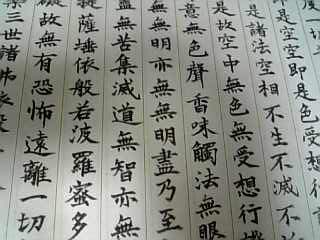 是空空即是色受
是諸法空相不生不滅不
是故空中無色無受想行
意無色聲香味觸法無眼
無無明亦無無明盡乃至
盡無苦集滅道無智亦無
提薩埵依般若波羅蜜多
礙故無有恐怖遠離一切
三世諸佛依般